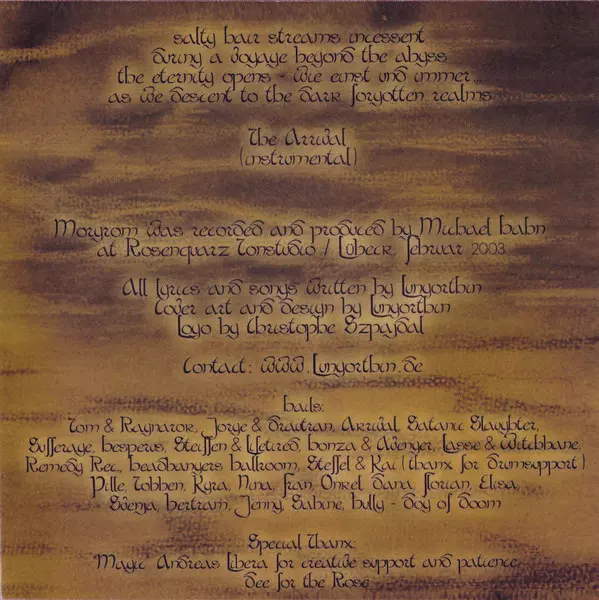 salty hair streams incessent
during a voyage beyond the abyss
the eternity opens - wie einst und immer...
as we descent to the dark forgotten realms
The Arrival
(instrumental)
Morgrom was recorded and produced by Michael Hahn
at Rosenquarz Tonstudio / Lübeck, Februar 2003
All lyrics and songs written by Lungorthin
Cover art and design by Lungorthin
Logo by Christophe Szpajdal
Contact: www.Lungorthin.de
Hails:
Tom & Ragnarok, Jorge & Drautran, Arrival, Satanic Slaughter,
Sufferage, Hesperus, Steffen & Lifetired, Honza & Avenger, Lasse & Witchbane,
Remedy Rec., Headbangers Ballroom, Steffel & Kai (thanx for drumsupport)
Pille, Tobben, Kyra, Nina, Fran, Onkel Dana, Florian, Elisa,
Svenja, Bertram, Jenny, Sabine, Hully - Day of Doom
Special Thanx:
Magic Andreas Libera for creative support and patience
Dee for the Rose